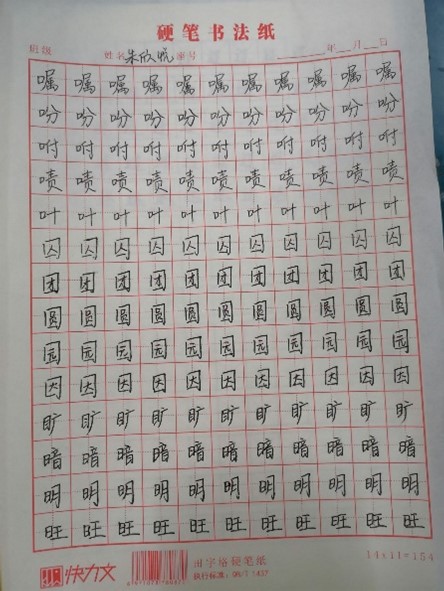 硬笔书法纸
班级 姓名 朱欣悦 座号 年 月 日
嘱 嘱 嘱 嘱 嘱 嘱 嘱 嘱 嘱 嘱 嘱
吩 吩 吩 吩 吩 吩 吩 吩 吩 吩 吩
咐 咐 咐 咐 咐 咐 咐 咐 咐 咐 咐
啧 啧 啧 啧 啧 啧 啧 啧 啧 啧 啧
叶 叶 叶 叶 叶 叶 叶 叶 叶 叶 叶
囚 囚 囚 囚 囚 囚 囚 囚 囚 囚 囚
团 团 团 团 团 团 团 团 团 团 团
圆 圆 圆 圆 圆 圆 圆 圆 圆 圆 圆
园 园 园 园 园 园 园 园 园 园 园
因 因 因 因 因 因 因 因 因 因 因
旷 旷 旷 旷 旷 旷 旷 旷 旷 旷 旷
暗 暗 暗 暗 暗 暗 暗 暗 暗 暗 暗
明 明 明 明 明 明 明 明 明 明 明
旺 旺 旺 旺 旺 旺 旺 旺 旺 旺 旺
快力文 田字格硬笔纸 14x11=154
执行标准: QB/T 1437